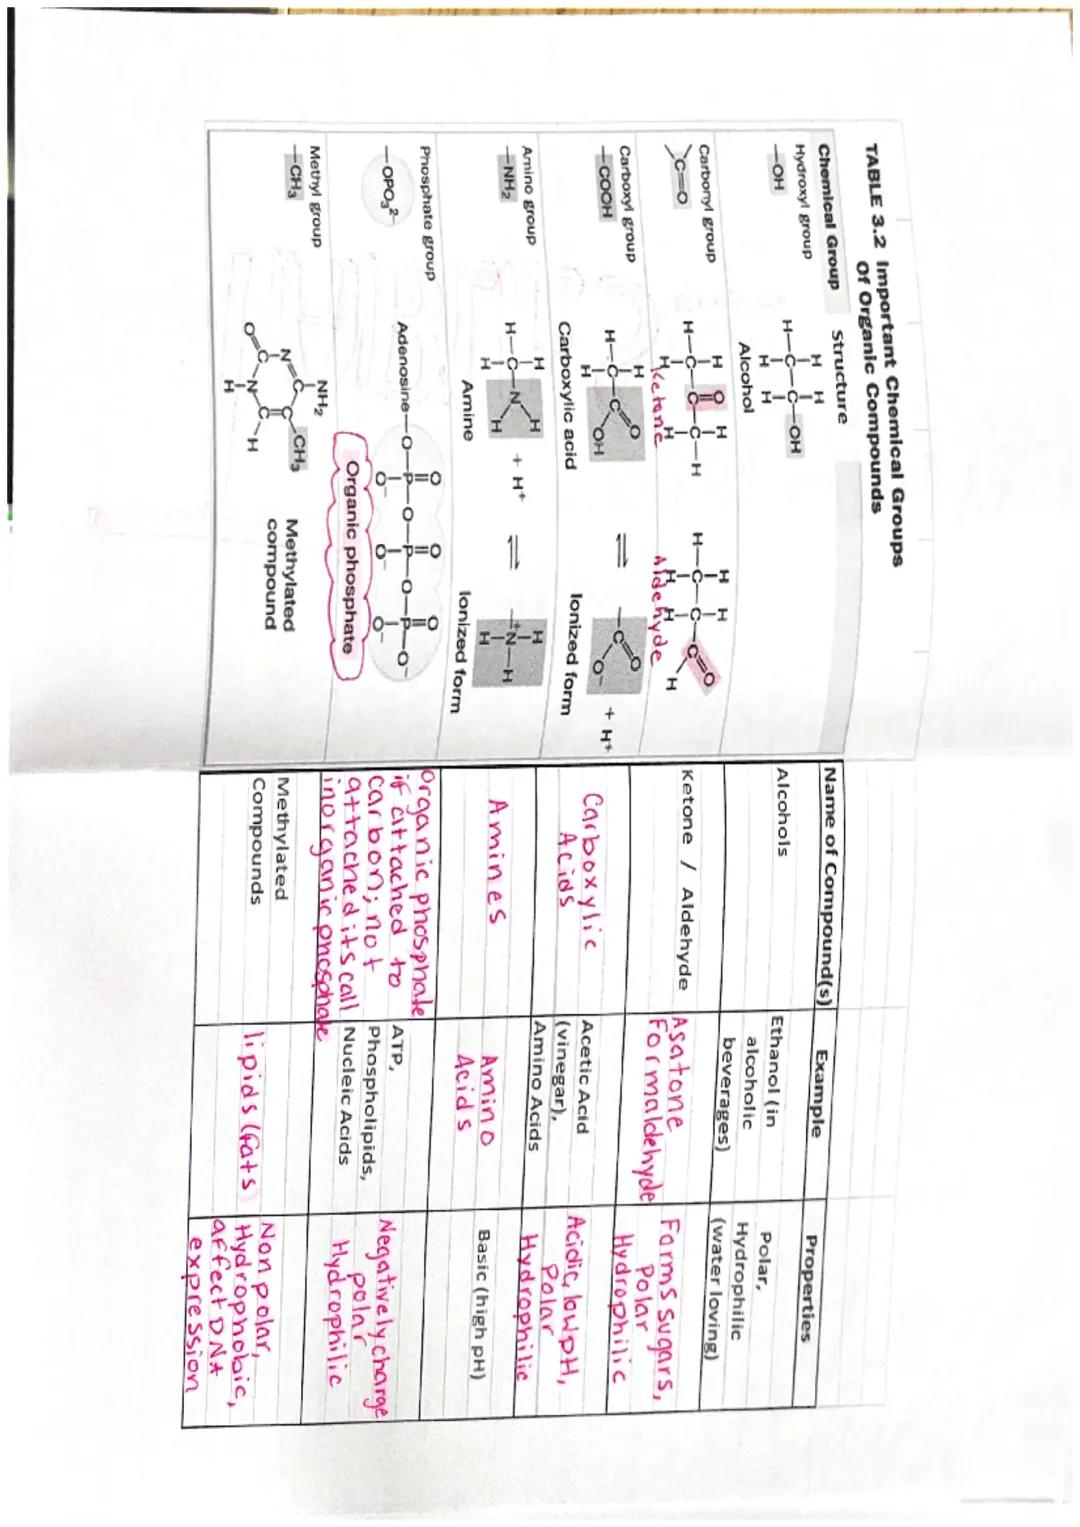 TABLE 3.2 Important Chemical Groups
of Organic Compounds
Chemical Group
Structure
Name of Compound(s)
Example
Properties
Hydroxyl group
—OH
H H
H—C—C—OH
H H
Alcohol
Alcohols
Ethanol (in
alcoholic
beverages)
Polar,
Hydrophilic
(water loving)
Carbonyl group
C=O
H O H
H—C—C—C—H
H H
Ketone
H H O
H—C—C—C
H H H
Aldehyde
Ketone / Aldehyde
Asatone
Formaldehyde
Forms sugars,
Polar
Hydrophilic
Carboxyl group
—COOH
H O
H—C—C
H OH
Carboxylic acid
⇌
O
—C
O⁻
+ H⁺
Ionized form
Carboxylic
Acids
Acetic Acid
(vinegar),
Amino Acids
Acidic, low pH,
Polar
Hydrophilic
Amino group
—NH₂
H H
H—C—N
H H
+ H⁺
Amine
⇌
H
—⁺N—H
H
Ionized form
Amines
Amino
Acids
Basic (high pH)
Phosphate group
—OPO₃²⁻
O O O
Adenosine—O—P—O—P—O—P—O⁻
O⁻ O⁻ O⁻
Organic phosphate
organic phosphate
if attached to
carbon; not
attached its call
inorganic phosphate
ATP,
Phospholipids,
Nucleic Acids
Negatively charge
polar
Hydrophilic
Methyl group
—CH₃
NH₂
N C C CH₃
O=C N C H
H
Methylated
compound
Methylated
Compounds
lipids (fats)
Non polar,
Hydrophobic,
affect DNA
expression